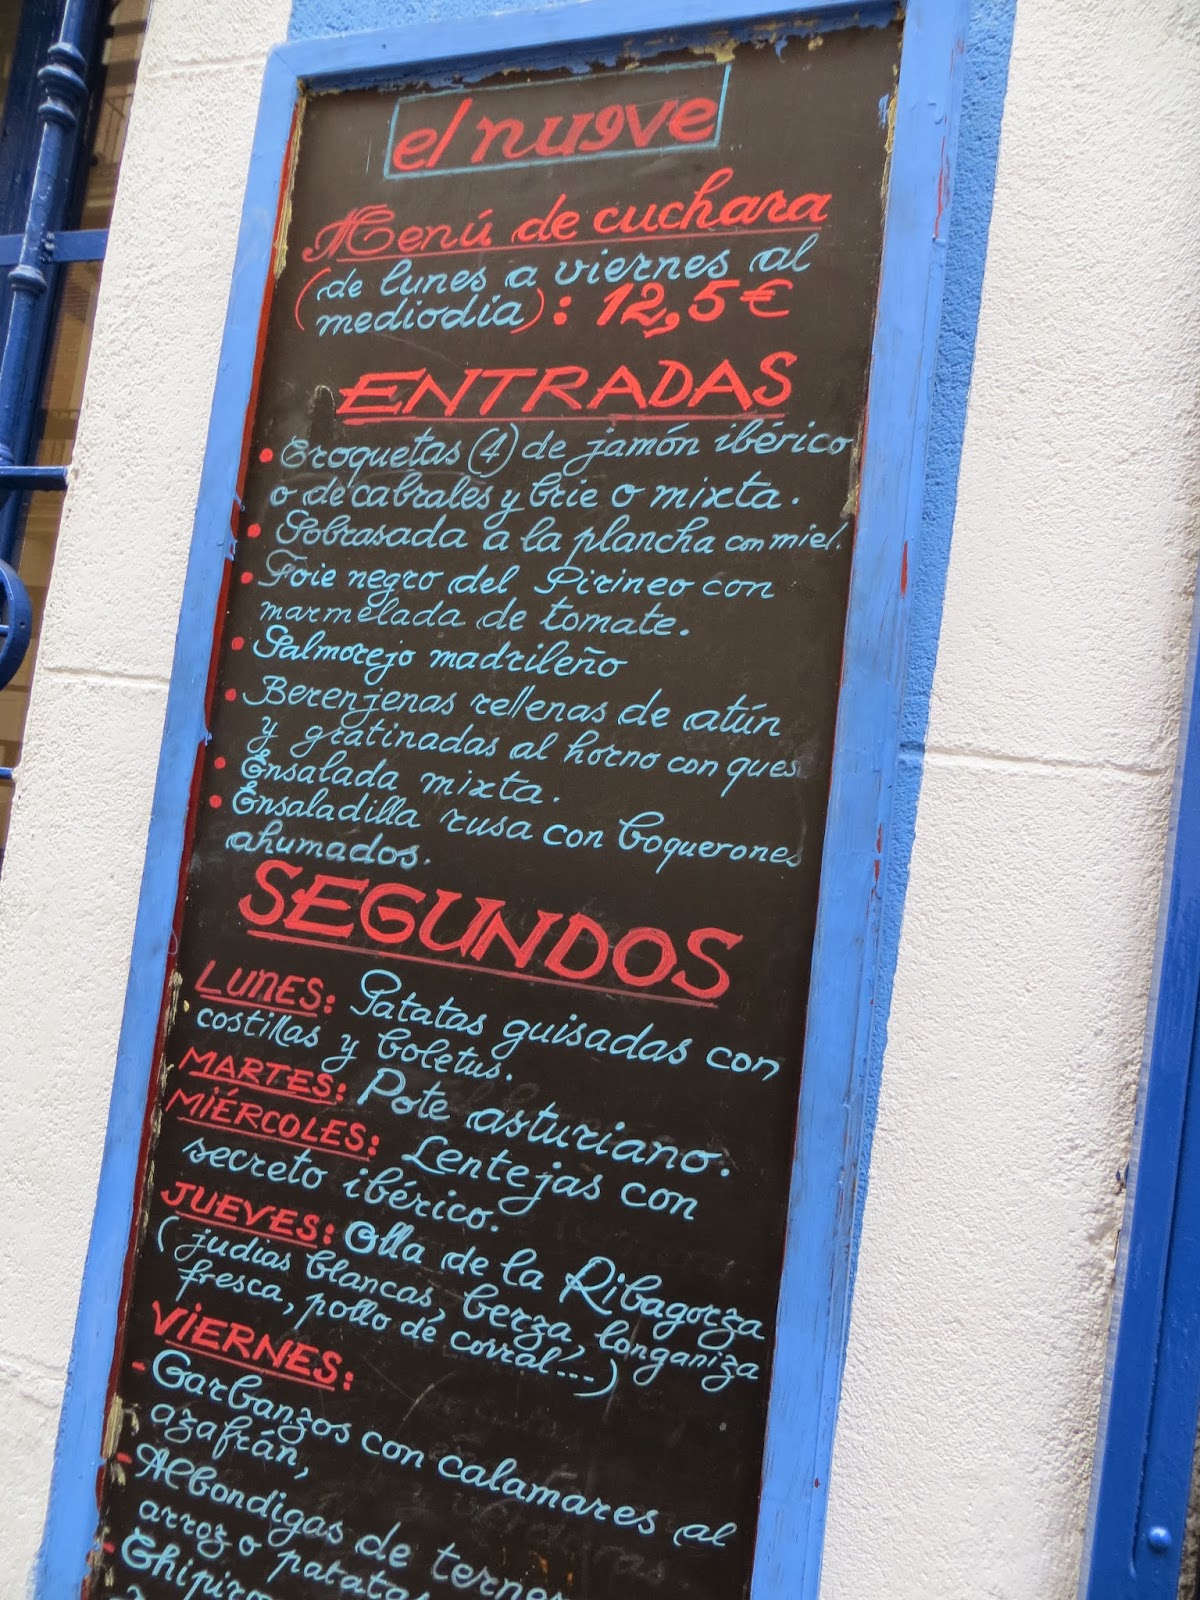 el nueve
Menú de cuchara
(de lunes a viernes al
mediodia): 12,5€
ENTRADAS
• Croquetas (4) de jamón ibérico
o de cabrales y brie o mixta.
• Sobrasada a la plancha con miel.
• Foie negro del Pirineo con
marmelada de tomate.
• Salmorejo madrileño
• Berenjenas rellenas de atún
y gratinadas al horno con ques
• Ensalada mixta.
• Ensaladilla rusa con boquerones
ahumados.
SEGUNDOS
LUNES: Patatas guisadas con
costillas y boletus.
MARTES: Pote asturiano.
MIÉRCOLES: Lentejas con
secreto ibérico.
JUEVES: Olla de la Ribagorza
(judias blancas, berza, longaniza
fresca, pollo de corral...)
VIERNES:
- Garbanzos con calamares al
azafrán,
- Albondigas de terner
arroz o patata
- Chipiro